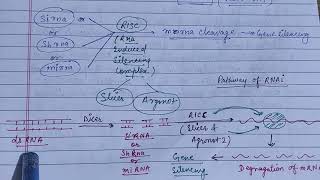 SiRNA
or
ShRNA
or
miRNA
RISC
(RNA
Induced
Silencing
Complex)
mRNA cleavage
Gene Silencing
Pathway of RNAi
Slicer
Argonot
Dicer
dsRNA
SiRNA
or
ShRNA
or
miRNA
RISC
(Slicer &
Argonot 2)
Gene
Silencing
Degragation of mRNA